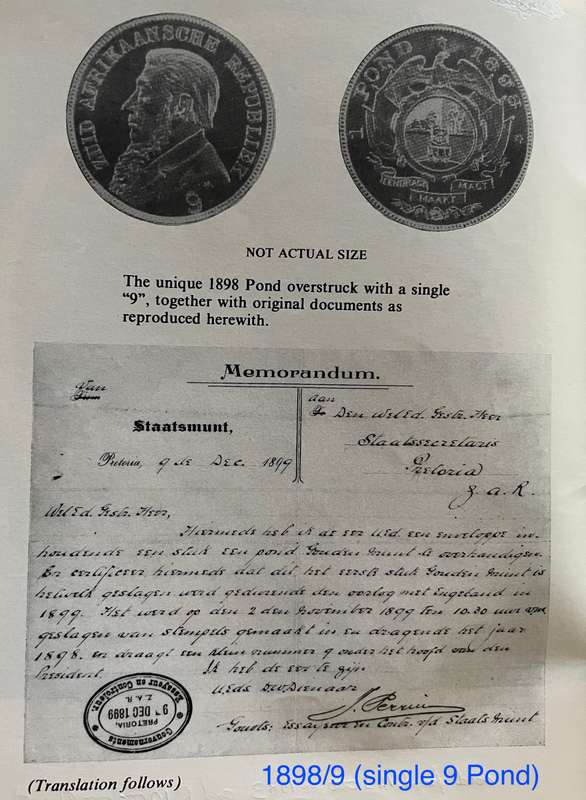 ZUID AFRIKAANSCHE REPUBLIEK
9
1 POND 1898
EENDRAGT MAGT
MAAKT
NOT ACTUAL SIZE
The unique 1898 Pond overstruck with a single
“9”, together with original documents as
reproduced herewith.
Memorandum.
Van
aan
Den WelEd. Gestr. Heer
Staatsmunt,
Staatssecretaris
Pretoria, 9 de Dec. 1899
Pretoria
Z.A.R.
WelEd. Gestr. Heer,
Hiermede heb ik de eer UEd. een enveloppe in-
houdende een stuk een pond Gouden Munt te overhandigen.
En certificeer hiermede dat dit, het eerste stuk Gouden Munt is
hetwelk geslagen werd gedurende den oorlog met Engeland in
1899. Het werd op den 2 den November 1899 ten 10.30 uur
geslagen van stempels gemaakt in en dragende het jaar
1898. en draagt een klein nommer 9 onder het hoofd van den
President.
Ik heb de eer te zijn
UEds Dw Dienaar
J. Perrin
Gouvts: Essayeur en Contr. v/d Staats Munt
Gouvernements
Essayeur en Controleur.
PRETORIA,
9 DEC 1899
Z.A.R.
(Translation follows)
1898/9 (single 9 Pond)